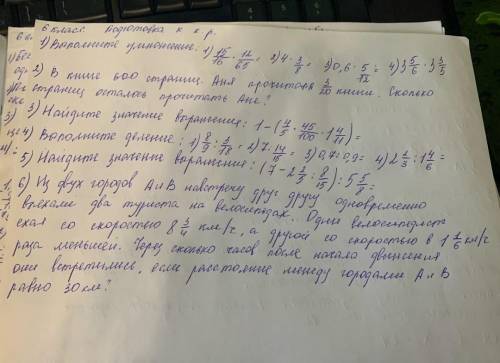 6 класс. Подготовка к к.р.
1) Выполните умножение: 1) 15/16 · 12/65 = 2) 4 · 3/8 = 3) 0,6 · 5/12 = 4) 3 5/6 · 3 3/5
2) В книге 600 страниц. Аня прочитала 3/20 книги. Сколько
страниц осталось прочитать Ане?
3) Найдите значение выражения: 1 - (4/5 · 45/100 · 1 4/11) =
4) Выполните деление: 1) 8/9 : 5/18 = 2) 7 : 14/15 = 3) 0,7 : 0,9 = 4) 2 1/3 : 1 4/6 =
5) Найдите значение выражения: (7 - 2 2/5 : 8/15) : 5 5/8 =
6) Из двух городов А и В навстречу друг другу одновременно
выехали два туриста на велосипедах. Один велосипедист
ехал со скоростью 8 3/4 км/ч, а другой со скоростью в 1 1/6 км/ч
раза меньшей. Через сколько часов после начала движения
они встретились, если расстояние между городами А и В
равно 30 км?